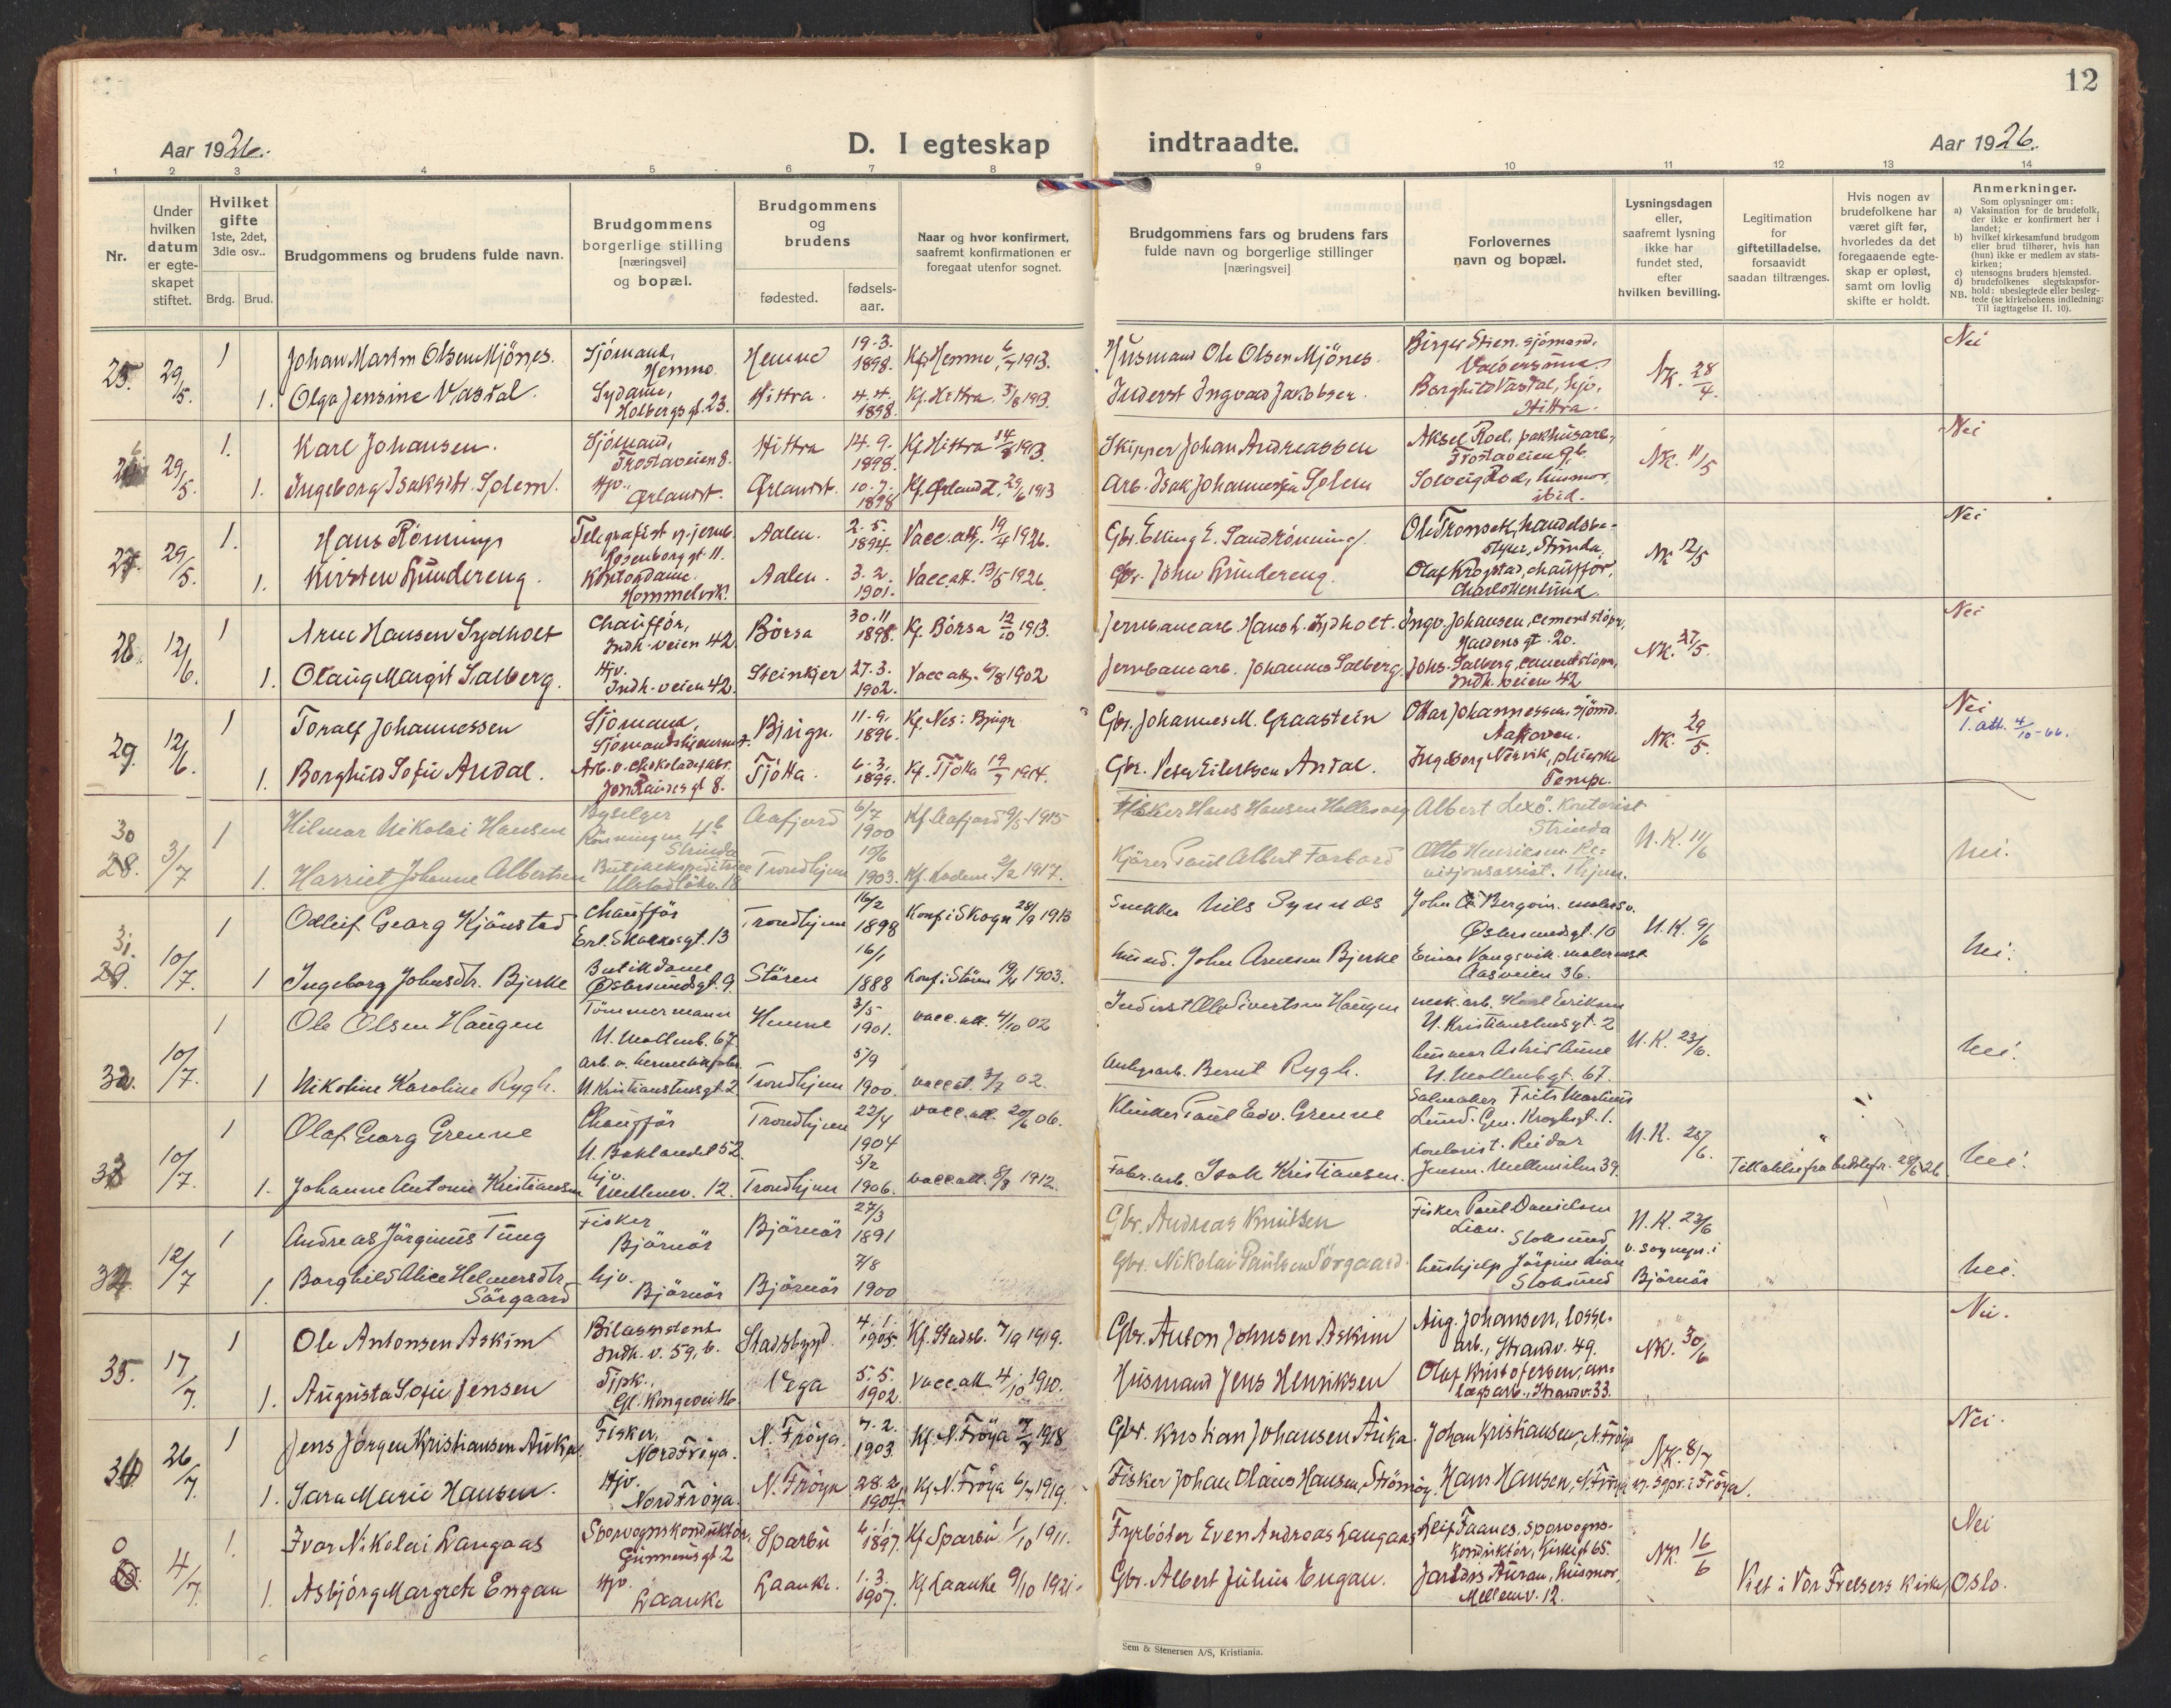 12
Aar 1926.
D. I egteskap indtraadte.
Aar 1926.
1 2 3 4 5 6 7 8 9 10 11 12 13 14
Nr.
Under hvilken datum er egteskapet stiftet.
Hvilket gifte 1ste, 2det, 3die osv..
Brdg. Brud.
Brudgommens og brudens fulde navn.
Brudgommens borgerlige stilling [næringsvei] og bopæl.
Brudgommens og brudens
fødested. fødselsaar.
Naar og hvor konfirmert, saafremt konfirmationen er foregaat utenfor sognet.
Brudgommens fars og brudens fars fulde navn og borgerlige stillinger [næringsvei]
Forlovernes navn og bopæl.
Lysningsdagen eller, saafremt lysning ikke har fundet sted, efter hvilken bevilling.
Legitimation for giftetilladelse, forsaavidt saadan tiltrænges.
Hvis nogen av brudefolkene har været gift før, hvorledes da det foregaaende egteskap er opløst, samt om lovlig skifte er holdt.
Anmerkninger.
Som oplysninger om:
a) Vaksination for de brudefolk, der ikke er konfirmert her i landet;
b) hvilket kirkesamfund brudgom eller brud tilhører, hvis han (hun) ikke er medlem av statskirken;
c) utensogns bruders hjemsted.
d) brudefolkenes slegtskapsforhold: ubeslegtede eller beslegtede (se kirkebokens indledning: Til Iagttagelse II. 10).
NB.
25. 29/5. 1 Johan Martin Olsen Mjönes. Sjömand, Hemne. Hemne 19.3. 1898. Kf. Hemne, 6/7 1913. Husmand Ole Olsen Mjönes. Birger Stien. sjömand. NK. 28/4. Nei
1. Olga Jensine Vastal. Sydame, Holbergs gt. 23. Hittra. 4.4. 1898. Kf. Hittra 3/8 1913. Inderst Ingvald Jakobsen. Borghild Vastal, hjv. Hittra.
26 29/5. 1. Karl Johansen. Sjömand, Frostaveien 8. Hittra 14.9. 1898. Kf. Hittra 1913. Skipper Johan Andreassen Aksel Roel, pakhusarb, Frostaveien 9b. NK. 11/5 Nei
1. Ingeborg Isaksdtr. Solem. Hjv. Ørlandet. Ørlandet. 10.7. 1898 Kf. Ørlandet, 29/6 1913 Arb. Isak Johannesen Solem Solveig Roel, husmor, ibid.
27. 29/5. 1. Hans Rönning Telegrafist v. jernb. Rosenborg gt. 11. Aalen. 2.5. 1894. Vacc. att. 19/4 1926. Gbr. Elling E. Sandrönning. Ole Tronsek, handelsbestyrer, Strinda. NK 12/5 Nei
1. Kirsten Grindereng. Kontordame. Hommelvik. Aalen. 3.2. 1901. Vacc att. 13/5 1926. Gbr. John Grindereng. Olaf Krogstad, chauffør, Charlottenlund.
28. 12/6. 1 Arne Hansen Sydholt Chauffør, Indh. veien 42 Börsa 30.11. 1898. Kf. Börsa 12/10 1913. Jernbanearb. Hans L. Sydholt. Ingv. Johansen, cementstöper, gt. 20. NK. 27/5. Nei
1. Olaug Margit Salberg. Hjv. Indh. veien 42. Steinkjer 27.3. 1902. Vacc att. 6/8 1902 Jernbanearb. Johannes Salberg. Johs. Salberg, cementstöper, Indh. veien 42
29. 12/6. 1 Toralf Johannessen Sjömand, Sjömandshjemmet. Bjugn. 11.9. 1896. Kf. Nes: Bjugn Gbr. Johannes M. Graastein Ottar Johannessen. sjömd. NK. 29/5. Nei 1. att. 4/10-66.
1. Borghild Sofie Andal. Arb. v. chokoladefabr. gt 8. Tjötta. 6.3. 1899. Kf. Tjötta 1914. Gbr. Peter Eilertsen Andal. Ingeborg Nervik, pleierske Tempe.
30 28. 3/7 1 Hilmar Nikolai Hansen Byselger Rönningen 4b Strinda Aafjord 6/7 1900 Kf. Aafjord 9/5 1915 Fisker Hans Hansen Hellesvag Albert Lexö. Kontorist Strinda U.K. 11/6
1. Harriet Johanne Albertsen Butikekspeditrice Ulstadlökv. 18 Trondhjem 10/6 1903. Kf. Ladem. 2/2 1917. Kjörer Paul Albert Forbord Otto Henriksen. Revisjonsassist. Thjem. Nei.
31. 29. 10/7. 1 Odleif Georg Kjönstad Chauffør Erl. Skakkesgt. 13 Trondhjem 16/2 1898 Konf. i Skogn 28/9 1913 Snekker Nils Synnes John Bergvin. malersv. Østersundsgt. 10 U.K. 9/6
1 Ingeborg Johnsdtr. Bjerke Butikdame Østersundsgt. 9. Stören 16/1 1888 Konf. i Stören 1903. husmd. John Arnesen Bjerke Einar Vangsvik. malermest. Aasveien 36. Nei.
32. 10/7. 1 Ole Olsen Haugen Tömmermann U. Mollenb. 67. Hemne 3/5 1901. vacc. att. 4/10 02 Inderst Ole Sivertsen Haugen mek. arb. Karl Eriksen U. Kristianstensgt. 2 U.K. 23/6.
1 Nikoline Karoline Rygh. arb. v. hermetikfabr. U. Kristianstensgt. 2 Trondhjem 5/9 1900. vacc at. 3/7 02. Bernt Rygh. husmor Astrid Aune U. Mollenbgt. 67. Nei.
33 10/7. 1 Olaf Georg Grenne Chauffør U. Baklandet 52. Trondhjem 22/4 1904 vacc. att. 20/6 06. Klinker Paul Edv. Grenne Salmaker Frits Martinius Lund. Gen. Kroghsgt. 1. U.K. 28/6.
1. Johanne Antonie Kristiansen hjv. Mellemv. 12. Trondhjem 5/2 1906. vacc att. 8/8 1912. Fabr. arb. Isak Kristiansen. Kontorist. Reidar Jensen. Mellemilen 39. Tillatelse fra 28/6 26 Nei.
34. 12/7 1 Andreas Jörginus Tung Fisker Björnör Björnör 27/3 1891 Gbr. Andreas Knutsen Fisker Paul Danielsen Lian. Stoksund U.K. 23/6 v. sognepr. i Björnör
1. Borghild Alice Helmersdtr. Sörgaard hjv. Björnör Björnör 7/8 1900 Gbr. Nikolai Paulsen Sörgaard. hushjelp Jörgine Lian Stoksund Nei.
35. 17/7. 1 Ole Antonsen Askim Bilassistent Indh. v. 59, b. Stadsbygd. 4.1. 1905. Kf. Stadsb. 7/9 1919. Gbr. Anton Johnsen Askim Aug. Johansen, lossearb., Strandv. 49. NK. 30/6 Nei.
1. Augusta Sofie Jensen Tjpk., Gl. Kongevei 16 Vega 5.5. 1902. Vacc. att. 4/10 1910. Husmand Jens Henriksen Olaf Kristofersen, anlægsarb., Strandv. 33.
36 26/7. 1 Jens Jörgen Kristiansen Auka Fisker, Nord Fröya. N. Fröya. 7.2. 1903. Kf. N. Fröya 1918 Gbr. Kristian Johansen Auka. Johan Kristiansen, N. Fröya NK. 8/7 Nei.
1. Sara Marie Hansen. Hjv. Nord Fröya. N. Fröya 28.2. 1904. Kf. N. Fröya 6/7 1919. Fisker Johan Olaus Hansen, Strömöy. Hans Hansen, N. Fröya v. sgpr. i Fröya.
0 4/7. 1. Ivar Nikolai Langaas Sporvognskonduktör, Gunnerus gt 2 Sparbu 6.1. 1897. Kf. Sparbu 1/10 1911. Fyrböter Even Andreas Langaas Leif Faanes, sporvognskonduktör, Kirkegt 65. NK. 16/6 Nei
1. Asbjörg Margrete Engan Hjv. Laanke Laanke. 1.3. 1907. Kf. Laanke 9/10 1921. Gbr. Albert Julius Engan. Auran, husmor, Mellemv. 12. Viet i Vor Frelsers Kirke, Oslo.
Sem & Stenersen A/S, Kristiania.